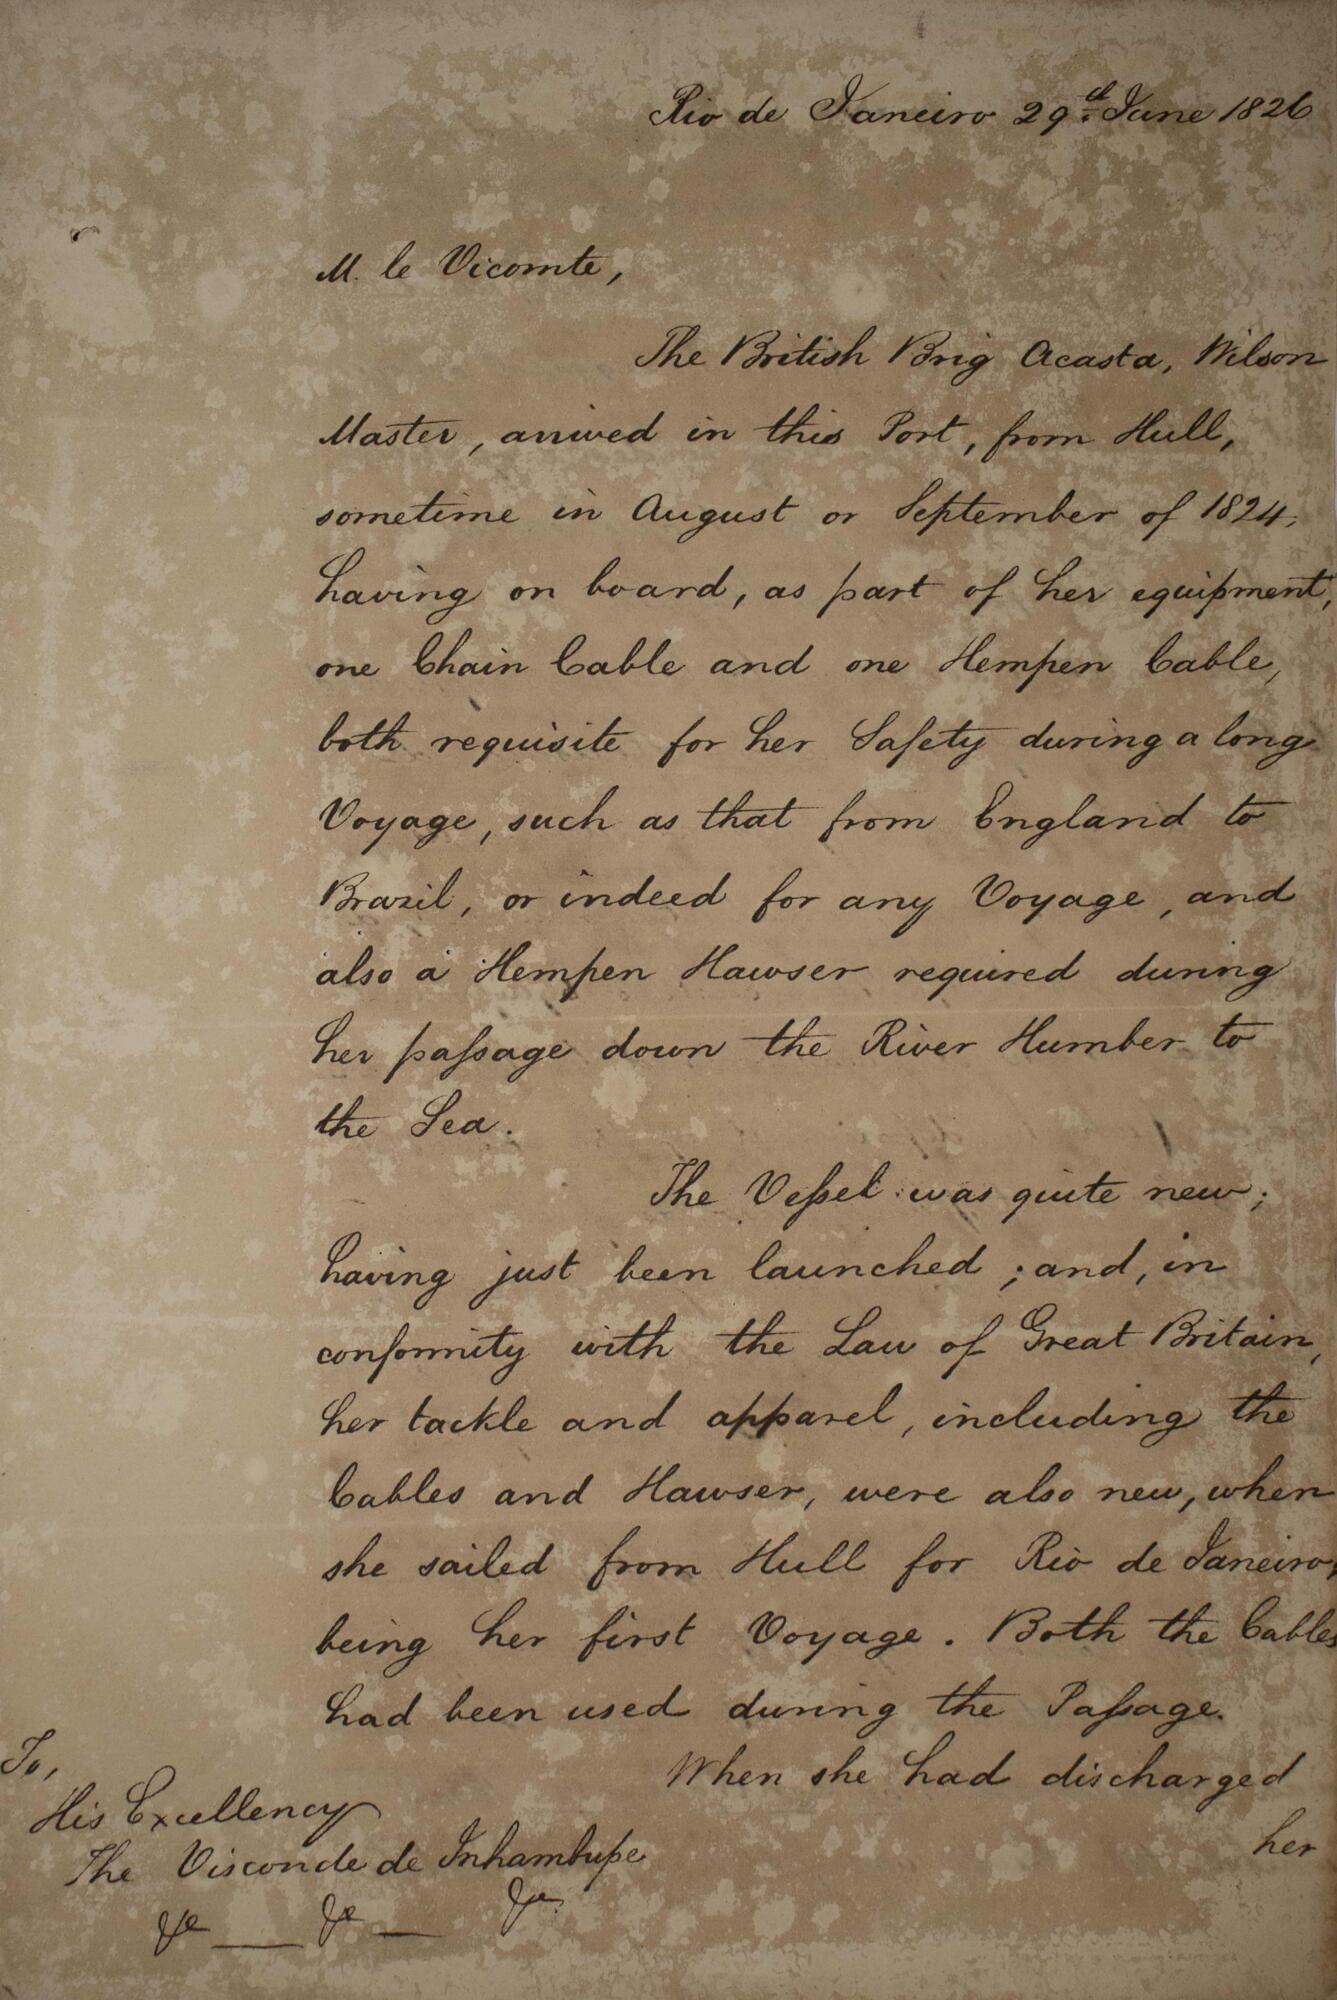 Rio de Janeiro 29th June 1826
M. le Vicomte,
The British Brig Acasta, Wilson
Master, arrived in this Port, from Hull,
sometime in August or September of 1824,
having on board, as part of her equipment,
one Chain Cable and one Hempen Cable,
both requisite for her Safety during a long
Voyage, such as that from England to
Brazil, or indeed for any Voyage, and
also a Hempen Hawser required during
her passage down the River Humber to
the Sea.
The Vessel was quite new;
having just been launched; and, in
conformity with the Law of Great Britain,
her tackle and apparel, including the
Cables and Hawser, were also new, when
she sailed from Hull for Rio de Janeiro,
being her first Voyage. Both the Cables
had been used during the Passage.
When she had discharged
her
To,
His Excellency
The Visconde de Inhambupe
&c __ &c __ &c